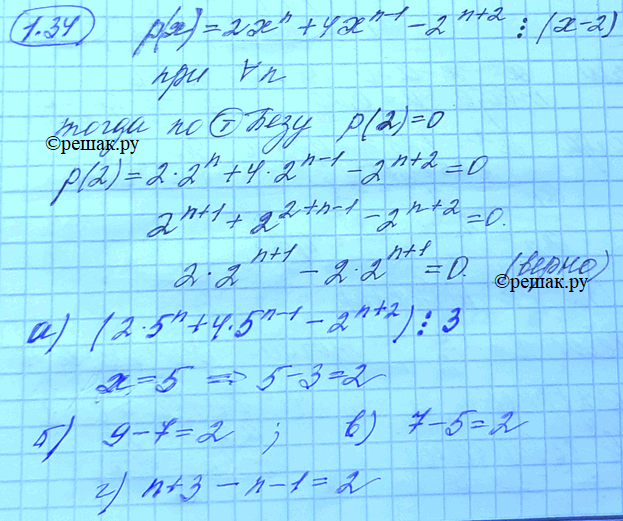 1.34 p(x) = 2xⁿ + 4xⁿ⁻¹ − 2ⁿ⁺² ⋮ (x−2)
при ∀n
тогда по Ⓣ Безу p(2)=0
©решак.ру
p(2) = 2·2ⁿ + 4·2ⁿ⁻¹ − 2ⁿ⁺² = 0
2ⁿ⁺¹ + 2²⁺ⁿ⁻¹ − 2ⁿ⁺² = 0.
2·2ⁿ⁺¹ − 2·2ⁿ⁺¹ = 0. (верно)
©решак.ру
а) (2·5ⁿ + 4·5ⁿ⁻¹ − 2ⁿ⁺²) ⋮ 3
x = 5 ⇒ 5−3=2
б) 9−7=2 ; в) 7−5=2
г) n+3 − n−1 = 2